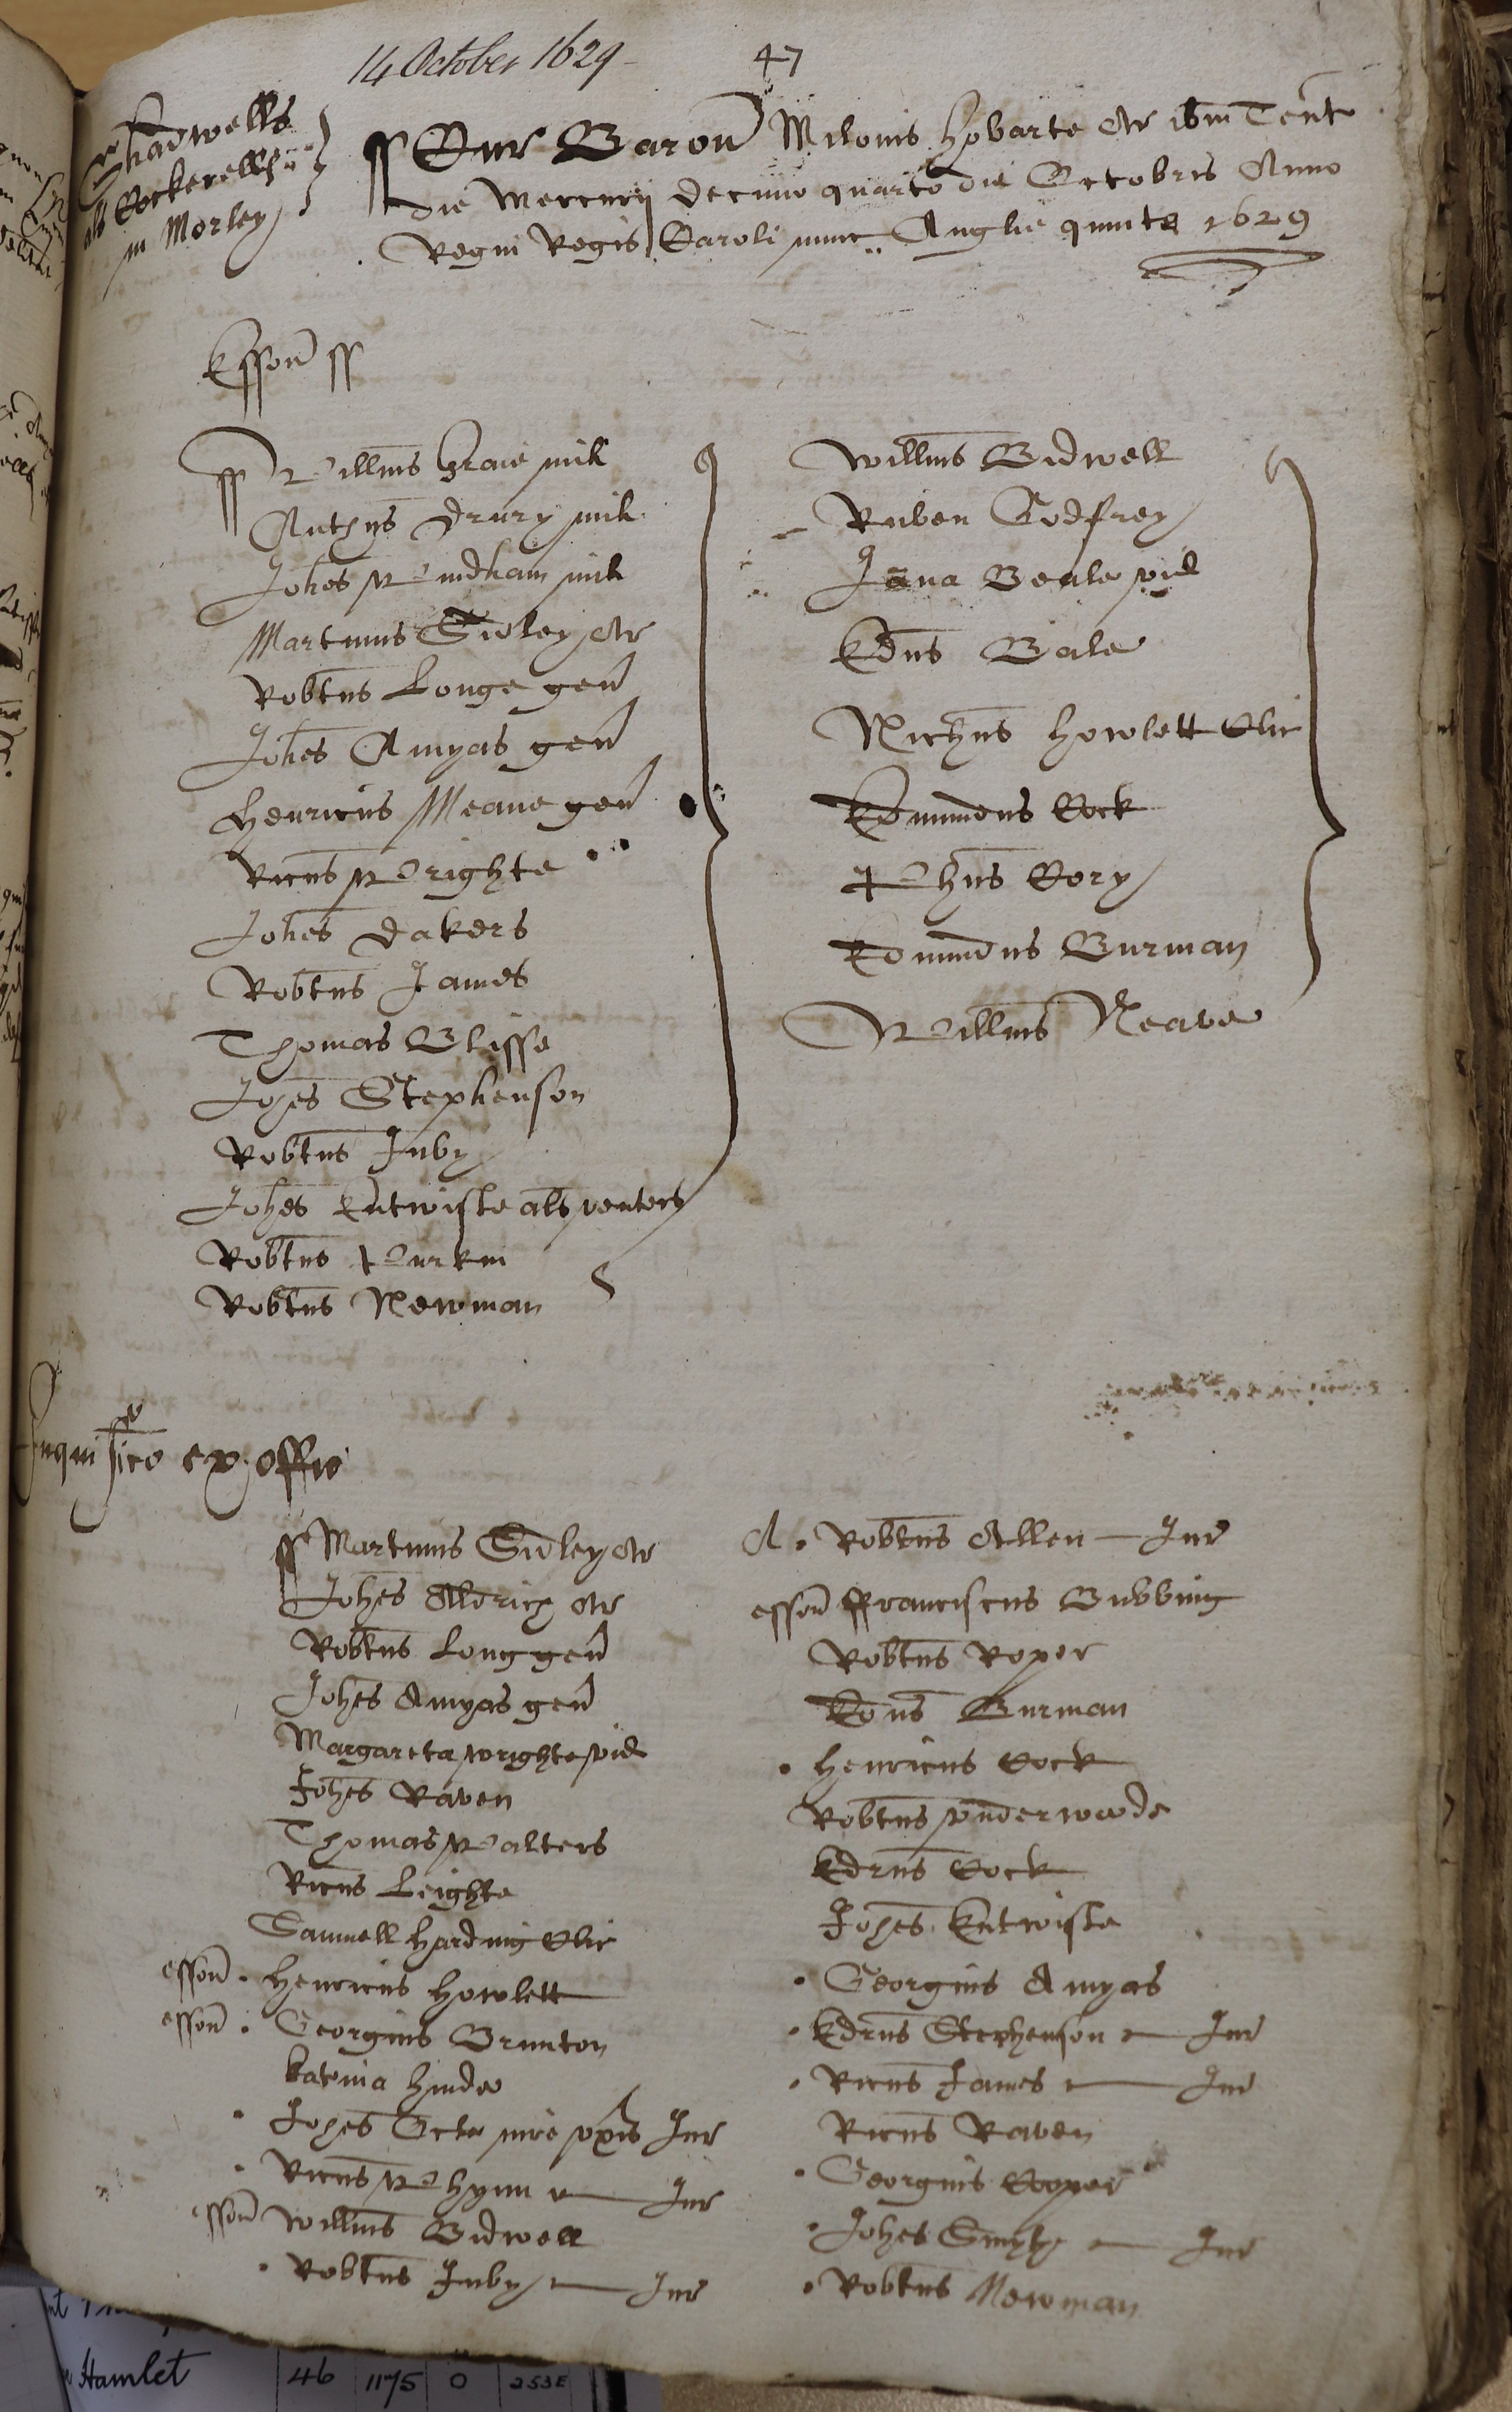 14 October 1629
47
Shadwells
als Cockerells
in Morley
Cur Baron Milonis Hobarte Ar ibm Tent
die Mercurij decimo quarto die Octobris Anno
Regni Regis Caroli nunc Anglie quinto 1629
Esson
Willms Graie mil
Anthus Drury mil
Johes Windham mil
Martinus Sidley Ar
Robtus Longe gen
Johes Amyas gen
Henricus Meane gen
Ricus Wrighte
Johes Dakers
Robtus James
Thomas Blisse
Johes Stephenson
Robtus Juby
Johes Entwisle als venters
Robtus Purkin
Robtus Newman
Willms Bidwell
Ruben Godfrey
Jana Beale vid
Edus Bale
Nichus Howlett Clic
Edmundus Cock
Phus Cory
Edmundus Burman
Willms Neave
Inquisico ex offic
Martinus Sidley Ar
Johes Aldrich Ar
Robtus Long gen
Johes Amyas gen
Margareta Wrighte vid
Johes Raven
Thomas Walters
Ricus Leighte
Samuell Harding Clic
esson Henricus Howlett
esson Georgius Brunton
Katrina Hinde
Johes Jur
Ricus Whynn Jur
esson Willms Bidwell
Robtus Juby Jur
A Robtus Allen Jur
esson Franciscus Bubbing
Robtus Roper
Edus Burman
Henricus Cock
Robtus Vnderwoode
Edrus Cock
Johes Entwisle
Georgius Amyas
Edrus Stephenson Jur
Ricus James Jur
Ricus Raven
Georgius Cooper
Johes Smyth Jur
Robtus Newman
Hamlet 46 1175 0 253E